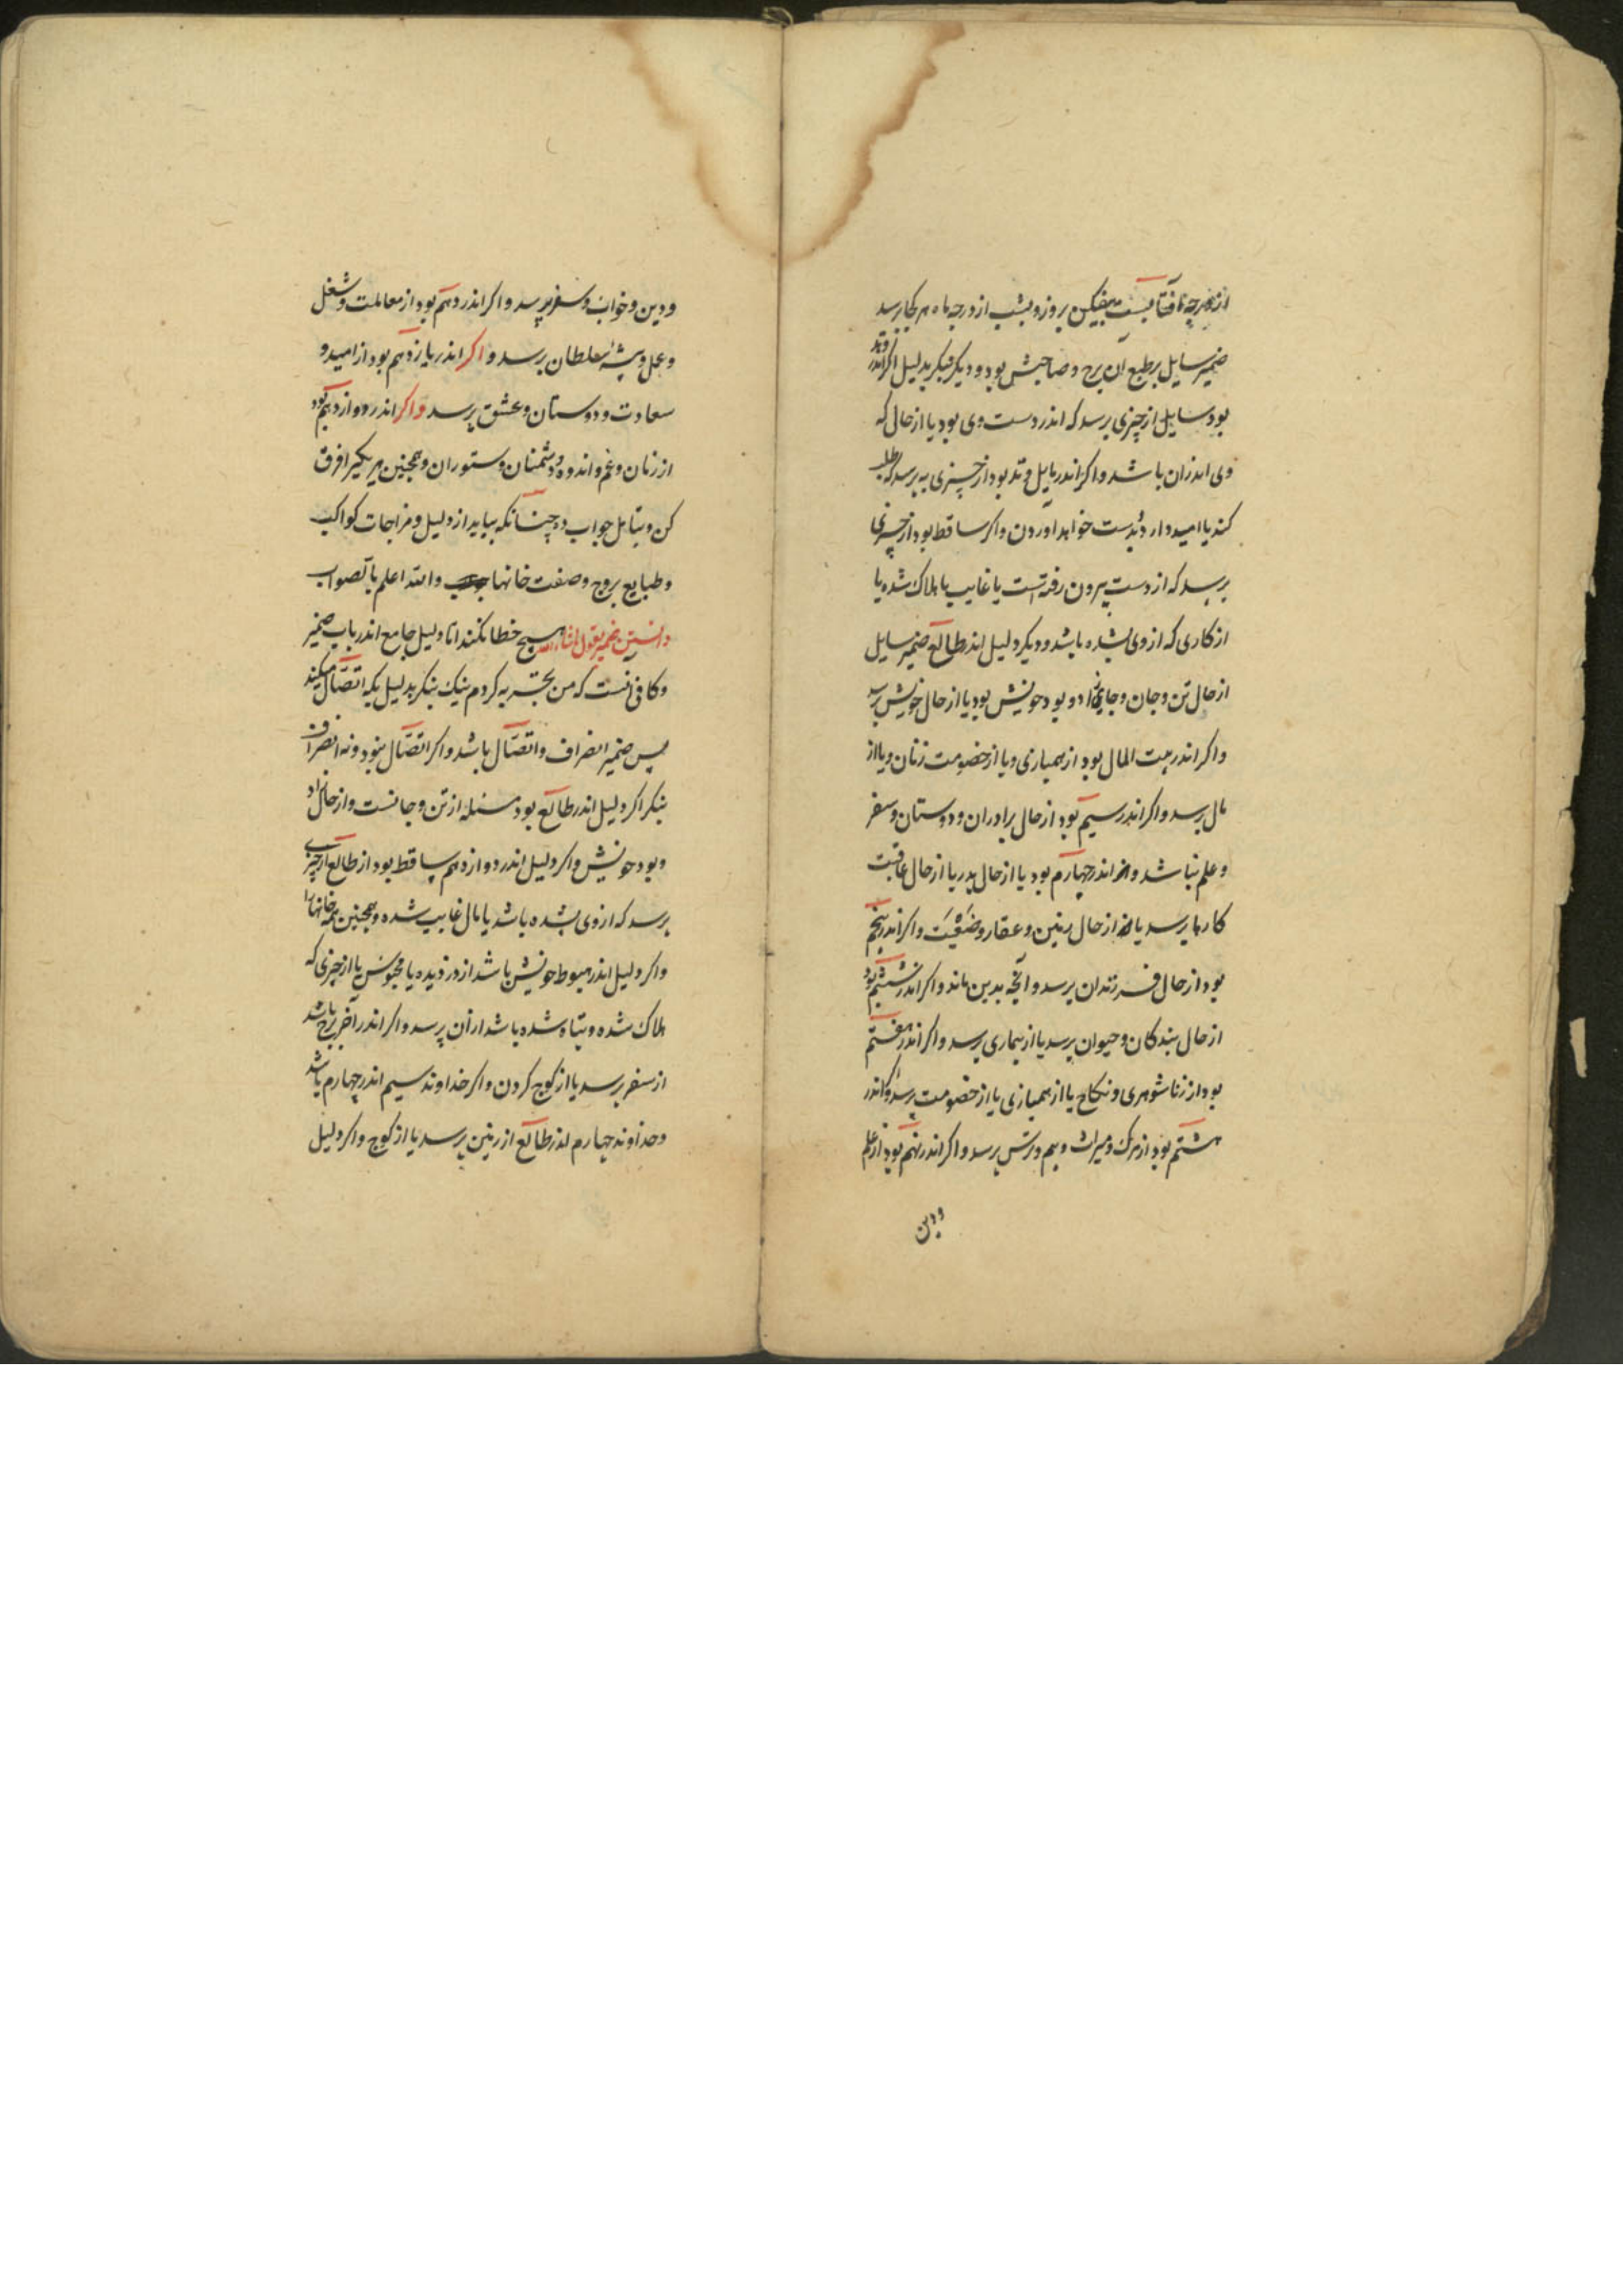 از درجه آفتابست بیفکن بروز و بشب از درجه ماه هر کجا رسد
ضمیر سایل بر طبع آن برج و صاحبش بود و دیگر بنگر بدلیل اگر اندر وتد
بود سایل از چیزی پرسد که اندر دست وی بود یا از حالی که
وی اندران باشد و اکر اندر مایل وتد بود از چیزی به پرسد که طلب
کند یا امید دارد بدست خواهد آوردن و اکر ساقط بود از چیزی
پرسد که از دست بیرون رفته است یا غایب یا هلاک شده یا
از کاری که از وی بشده باشد و دیکر دلیل اندر طالع ضمیر سایل
از حال تن و جان و جای بود یا از حال خویش پرسد
واکر اندر بیت المال بود از همبازی و یا از خصومت زنان و یا از
مال پرسد و اکر اندر سیم بود از حال برادران و دوستان و سفر
و علم باشد و اندر چهارم بود یا از حال پدر یا از حال عاقبت
کارها پرسد یا از حال زمین و عقار و ضیعت و اکر اندر پنجم
بود از حال فرزندان پرسد و آنچه بدین ماند و اکر اندر ششم بود
از حال بندکان و حیوان پرسد یا از بیماری پرسد و اکر اندر هفتم
بود از زناشوهری و نکاح یا از همبازی یا از خصومت پرسد و اکر اندر
هشتم بود از مرک و میراث و بیم و ترس پرسد و اکر اندر نهم بود از علم
و دین
و دین و خواب و سفر پرسد و اکر اندر دهم بود از معاملت و شغل
و عمل و پیشه سلطان پرسد و اکر اندر یازدهم بود از امید و
سعادت و دوستان و عشق پرسد و اکر اندر دوازدهم بود
از زنان و غم و اندوه و دشمنان و ستوران و همچنین هر یکیرا فرق
کن و بتأمل جواب ده چنانکه بیاید از دلیل و مزاجات کواکب
و طبایع بروج و صفت خانها والله اعلم بالصواب
دانستن ضمیر بقول هیچ خطا نکند اما دلیل جامع اندر باب ضمیر
و کافی انست که من تجربه کردم نیک بنکر بدلیل یکه اتصال میکند
پس ضمیر انصراف و اتصال باشد و اکر اتصال نبود و نه انصراف
بنکر اکر دلیل اندر طالع بود مسئله از تن و جانست و از حال او
و بود خویش و اکر دلیل اندر دوازدهم ساقط بود از طالع از چیزی
پرسد که از وی بشده باشد یا مال غایب شده و همچنین همه خانها را
واکر دلیل اندر هبوط خویش باشد از دزدیده یا محبوس یا از چیزی که
هلاک شده و تباه شده باشد از آن پرسد و اکر اندر آخر برج باشد
از سفر پرسد یا از کوچ کردن و اکر خداوند سیم اندر چهارم باشد
و خداوند چهارم اندر طالع از زمین پرسد یا از کوچ و اکر دلیل